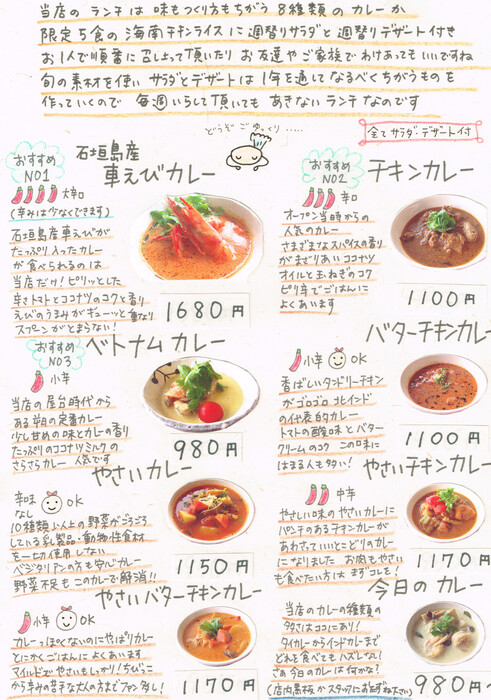 当店の ランチは 味もつくり方もちがう 8種類の カレーか
限定5食の 海南チキンライスに 週替りサラダと 週替りデザート付き
お1人で順番に 召し上って頂いたり お友達やご家族で わけあっても いいですね
旬の素材を使い サラダとデザートは 1年を通して なるべくちがうものを
作っていくので 毎週いらして頂いても あきないランチ なのです
どうぞごゆっくり.....
全てサラダ・デザート付
おすすめ
NO1
石垣島産
車えびカレー
大辛口
(辛みは少なくできます)
石垣島産車えびが
たっぷり入ったカレー
が食べられるのは
当店だけ!ピリッとした
辛さトマトとココナツのコクと香り
えびのうまみがギューッと重なり
スプーンがとまらない!
1680円
おすすめ
NO2
チキンカレー
辛口
オープン当時からの
人気のカレー
さまざまなスパイスの香り
がまざりあい ココナツ
オイルと玉ねぎのコク
ピリ辛でごはんに
よくあいます
1100円
おすすめ
NO3
ベトナムカレー
小辛
当店の屋台時代から
ある 定番カレー
少し甘めの味とカレーの香り
たっぷりのココナツミルクの
さらさらカレー 人気です
980円
バターチキンカレー
小辛 OK
香ばしいタンドリーチキン
がゴロゴロ 北インド
の代表的カレー
トマトの酸味とバター
クリームのコク この味に
はまる人も多い!
1100円
やさいカレー
辛味
なし
OK
10種類以上の野菜がごろごろ
している 乳製品・動物性食材
を一切使用しない
ベジタリアンの方も安心カレー
野菜不足もこのカレーで解消!!
1150円
やさいチキンカレー
中辛
やさしい味のやさいカレーに
パンチのあるチキンカレーが
あわさっていいとこどりのカレー
になりました お肉もやさい
も食べたい方は まずコレを!
1170円
やさいバターチキンカレー
小辛 OK
カレーっぽくないのにやっぱりカレー
とにかくごはんに よくあいます
マイルドでやさいもしっかり!ちびっこ
から辛の苦手な大人の方までファン多し!
1170円
今日のカレー
当店のカレーの種類の
多さはココにあり!
タイカレーからインドカレーまで
どれを食べてもハズレなし!
さあ今日のカレーは何かな?
(店内黒板かスタッフにおたずね下さい)
980円~